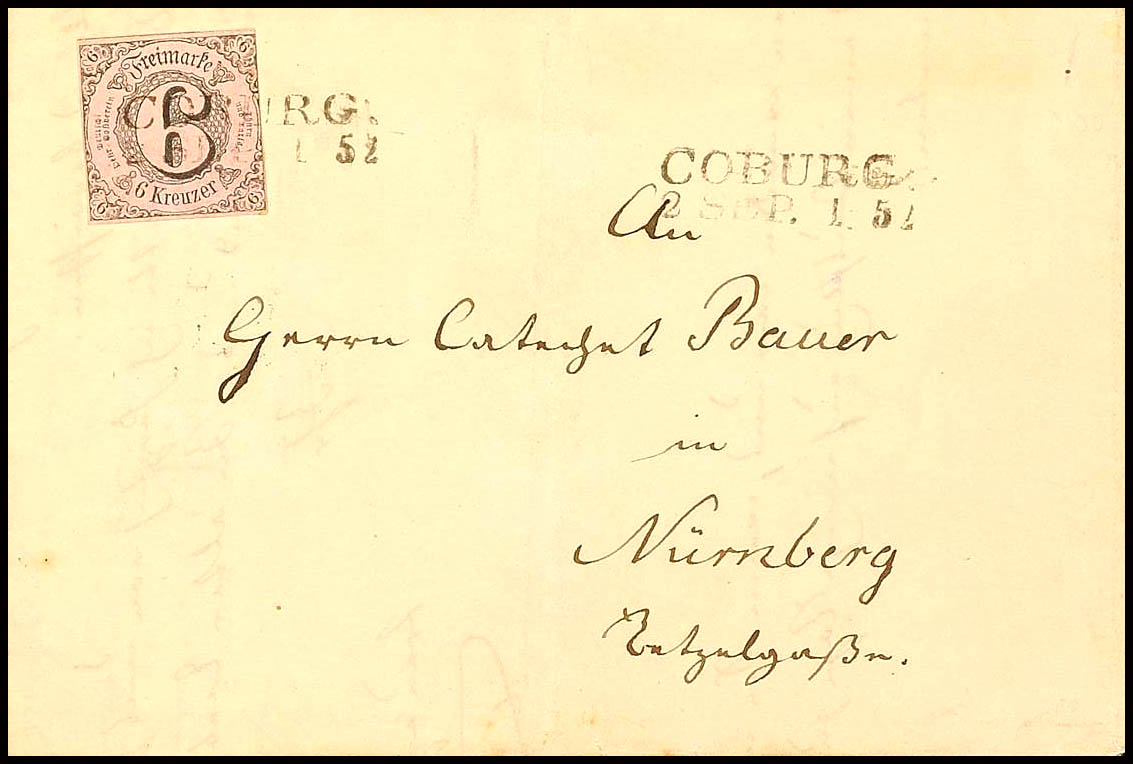 Freimarke
6
6 Kreuzer
COBURG.
1 52
COBURG.
2 SEP. 1. 52
An
Herrn Catechet Bauer
in
Nürnberg
Tetzelgaße.